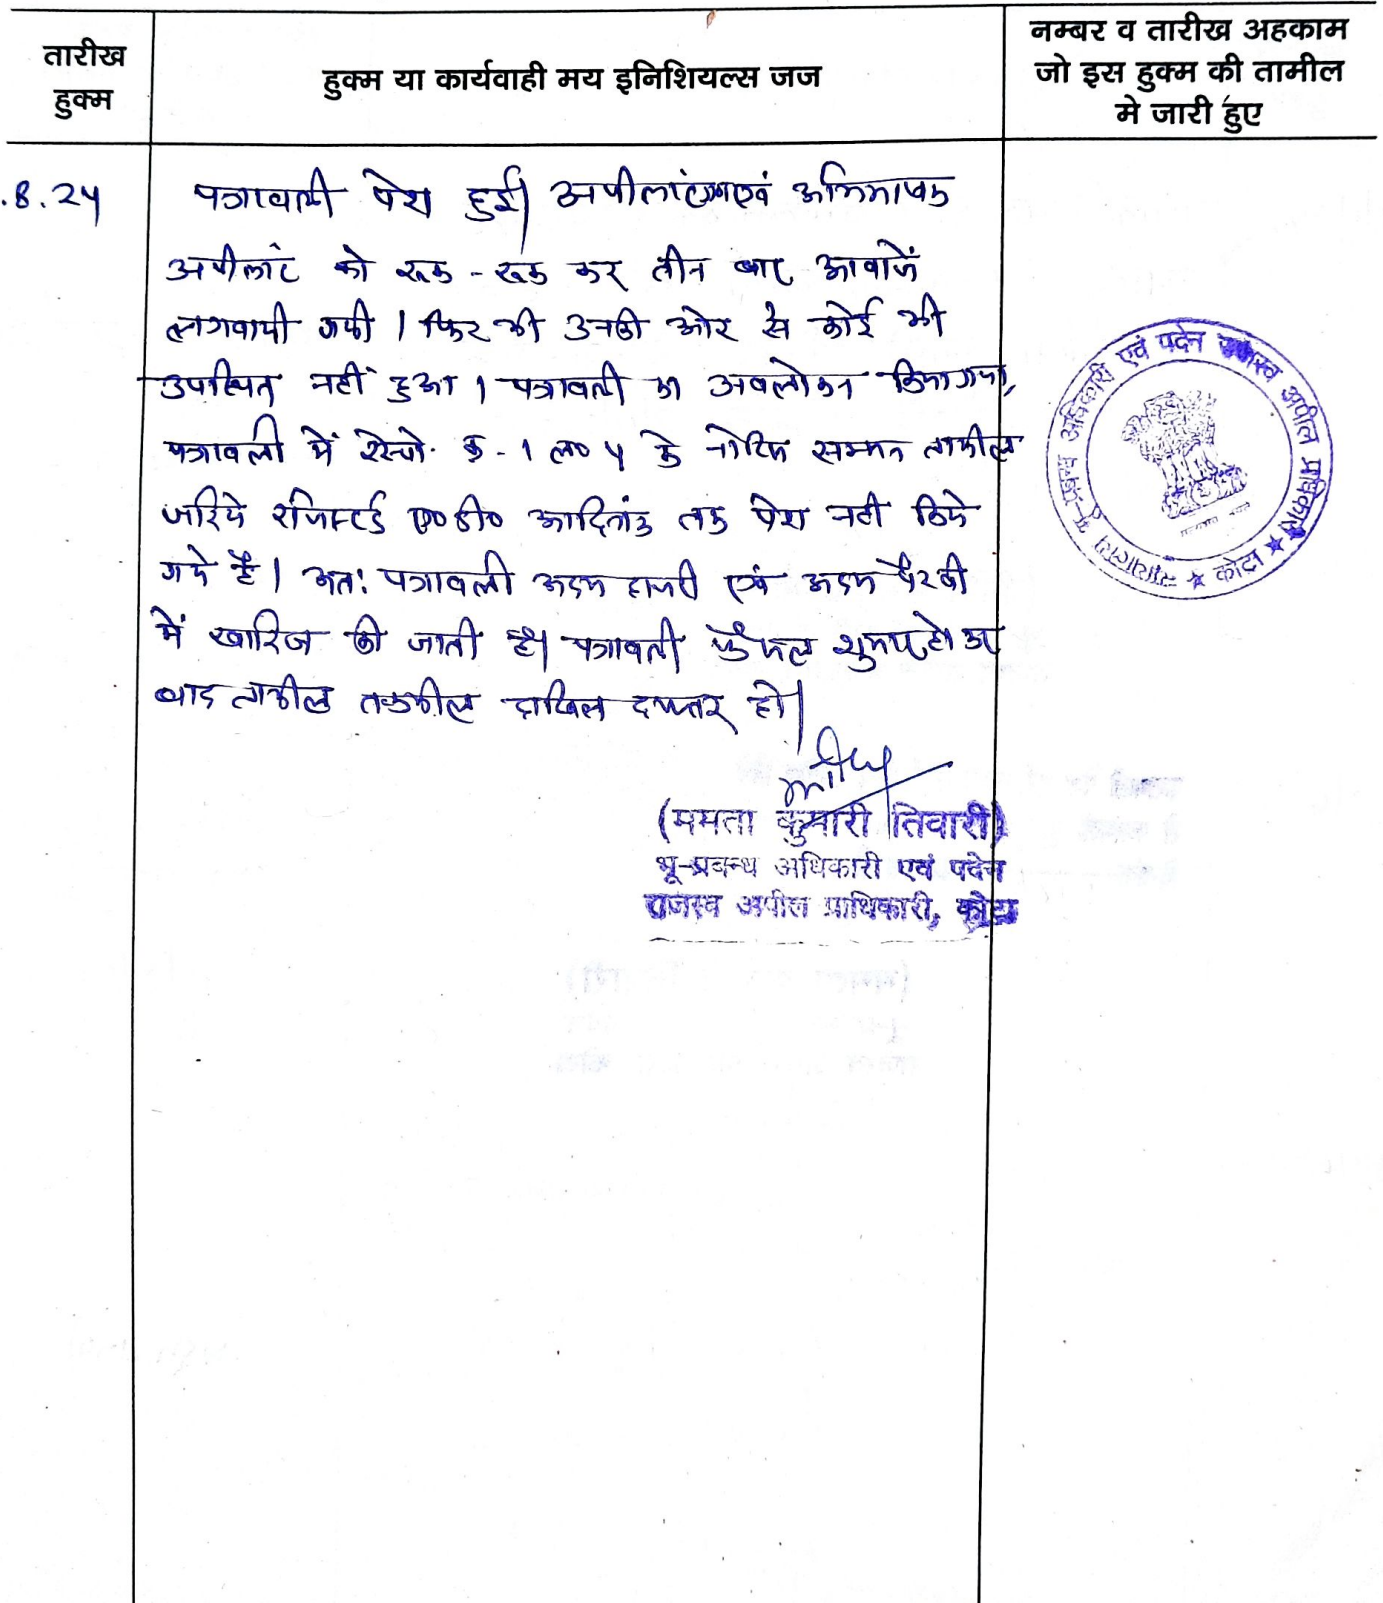 तारीख
हुक्म
हुक्म या कार्यवाही मय इनिशियल्स जज
नम्बर व तारीख अहकाम
जो इस हुक्म की तामील
मे जारी हुए
.8.24
पत्रावली पेश हुई। अपीलांटगण एवं अभिभाषक
अपीलांट को रूक-रूक कर तीन बार आवाजें
लगवायी गयी। फिर भी उनकी ओर से कोई भी
उपस्थित नहीं हुआ। पत्रावली का अवलोकन किया गया,
पत्रावली में रेस्पो. क्र-1 ल० 4 के नोटिस सम्मन तामील
जरिये रजिस्टर्ड ए०डी० आदिनांक तक पेश नहीं किये
गये है। अतः पत्रावली अदम हाजरी एवं अदम पैरवी
में खारिज की जाती है। पत्रावली फैसल शुमार हो कर
बाद तामील तकमील दाखिल दफ्तर हो।
(ममता कुमारी तिवारी)
भू-प्रबन्ध अधिकारी एवं पदेन
राजस्व अपील प्राधिकारी, कोटा
न्यायालय भू-प्रबन्ध अधिकारी एवं पदेन राजस्व अपील प्राधिकारी ★ कोटा ★